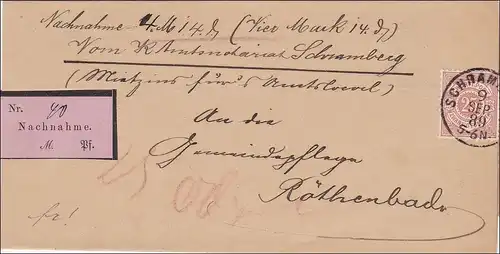 Nachnahme 4 M 14 ₰ (Vier Mark 14 ₰)
Vom K. Amtsnotariat Schramberg
(Mietzins für's Amtslocal)
Nr. 40
Nachnahme.
M. Pf.
SCHRAM
9
SEP
89
5-6N.
An die
Gemeindepflege
Röthenbach
fr!